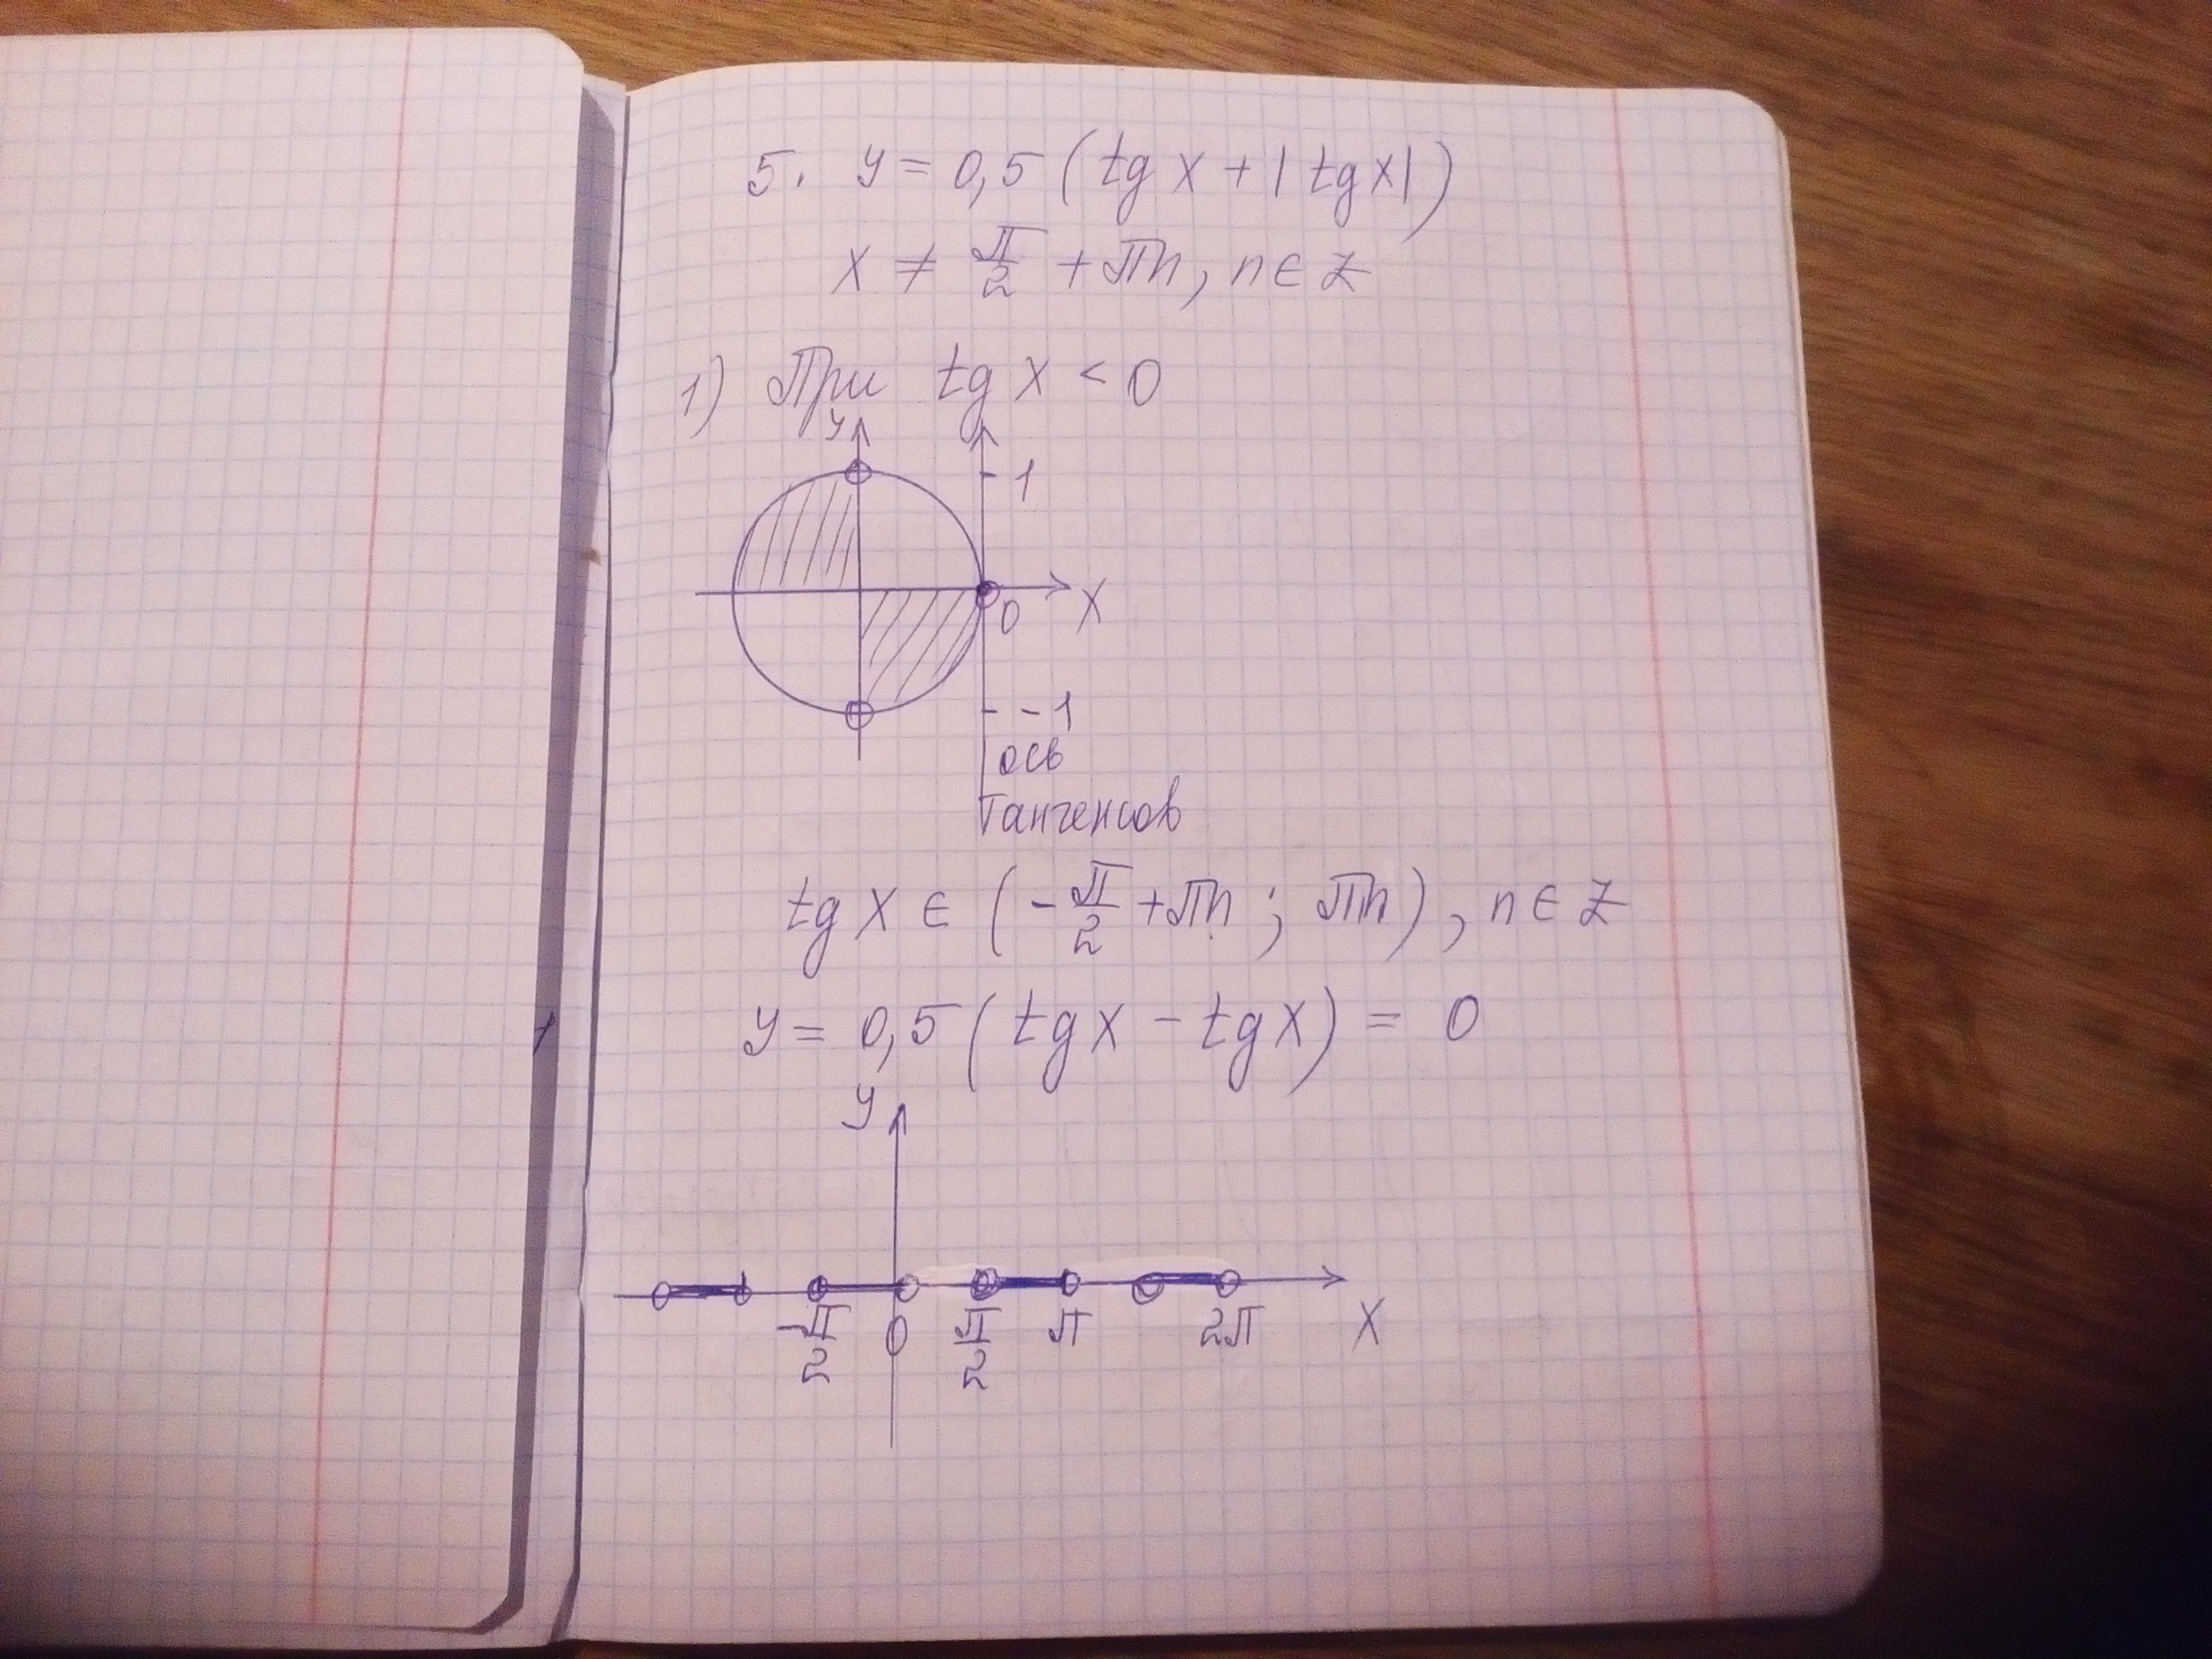 5. y = 0,5 (tg x + | tg x |)
x ≠ π/2 + πn, n ∈ Z
1) При tg x < 0
y
1
0 x
-1
ось
тангенсов
tg x ∈ (-π/2 + πn ; πn), n ∈ Z
y = 0,5 (tg x - tg x) = 0
y
-π/2 0 π/2 π 2π x